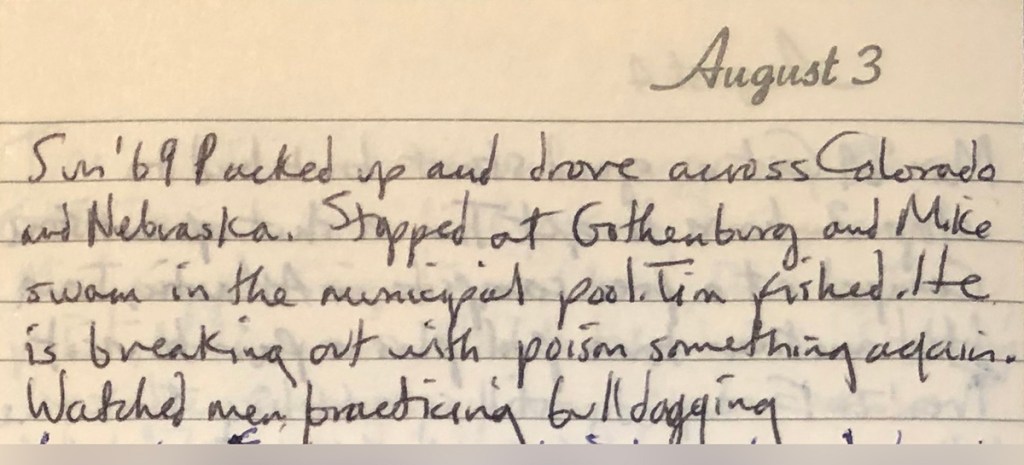 August 3
Sun '69 Packed up and drove across Colorado
and Nebraska. Stopped at Gothenburg and Mike
swam in the municipal pool. Tim fished. He
is breaking out with poison something again.
Watched men practicing bulldogging